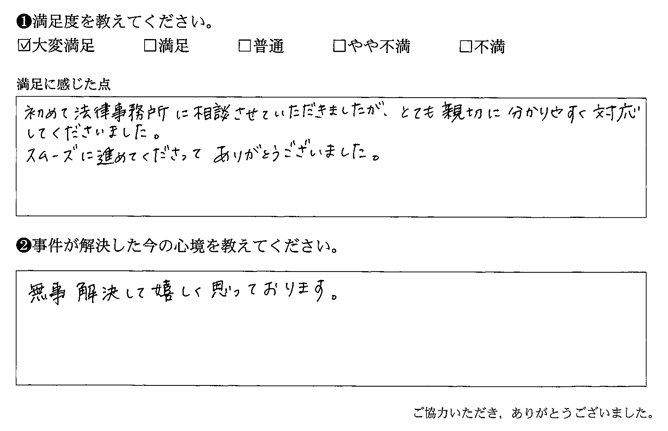 ❶満足度を教えてください。
☑大変満足 □満足 □普通 □やや不満 □不満
満足に感じた点
初めて法律事務所に相談させていただきましたが、とても親切に分かりやすく対応
してくださいました。
スムーズに進めてくださって ありがとうございました。
❷事件が解決した今の心境を教えてください。
無事解決して嬉しく思っております。
ご協力いただき，ありがとうございました。